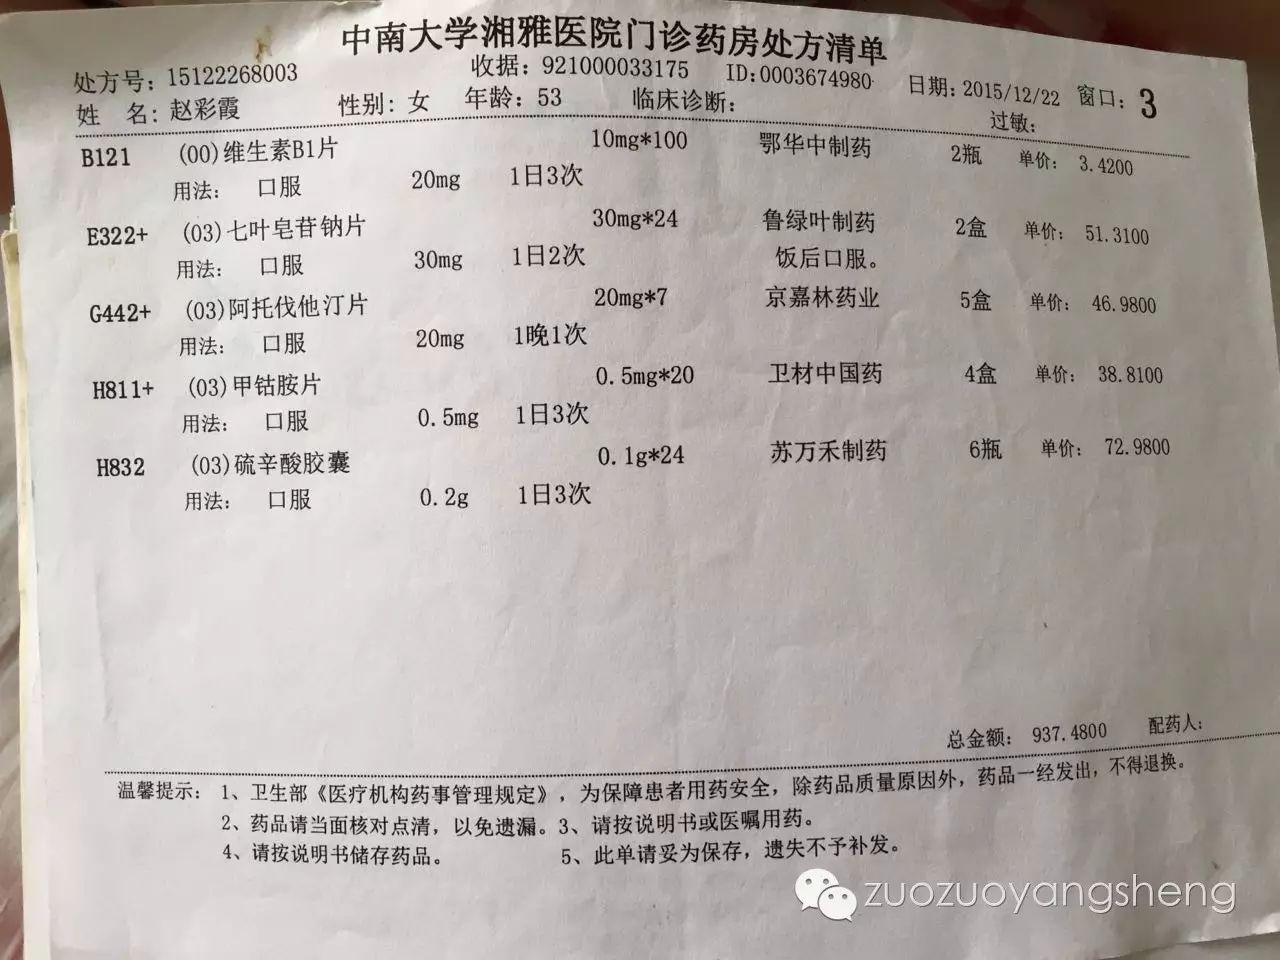 中南大学湘雅医院门诊药房处方清单
处方号：15122268003 收据：921000033175 ID:0003674980 日期：2015/12/22 窗口：3
姓 名：赵彩霞 性别：女 年龄：53 临床诊断： 过敏：
B121 (00)维生素B1片 10mg*100 鄂华中制药 2瓶 单价：3.4200
用法： 口服 20mg 1日3次
E322+ (03)七叶皂苷钠片 30mg*24 鲁绿叶制药 2盒 单价：51.3100
用法： 口服 30mg 1日2次 饭后口服。
G442+ (03)阿托伐他汀片 20mg*7 京嘉林药业 5盒 单价：46.9800
用法： 口服 20mg 1晚1次
H811+ (03)甲钴胺片 0.5mg*20 卫材中国药 4盒 单价：38.8100
用法： 口服 0.5mg 1日3次
H832 (03)硫辛酸胶囊 0.1g*24 苏万禾制药 6瓶 单价：72.9800
用法： 口服 0.2g 1日3次
总金额：937.4800 配药人：
温馨提示：1、卫生部《医疗机构药事管理规定》，为保障患者用药安全，除药品质量原因外，药品一经发出，不得退换。
2、药品请当面核对点清，以免遗漏。3、请按说明书或医嘱用药。
4、请按说明书储存药品。 5、此单请妥为保存，遗失不予补发。
zuozuoyangsheng